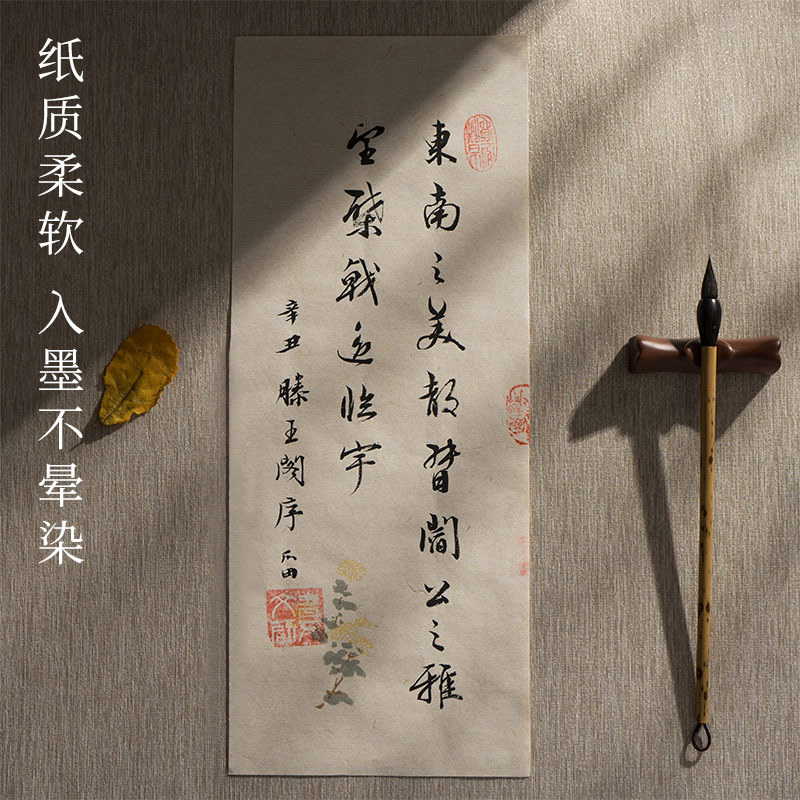 纸质柔软 入墨不晕染
東南之美都督閻公之雅
望棨戟遥临宇
辛丑滕王閣序